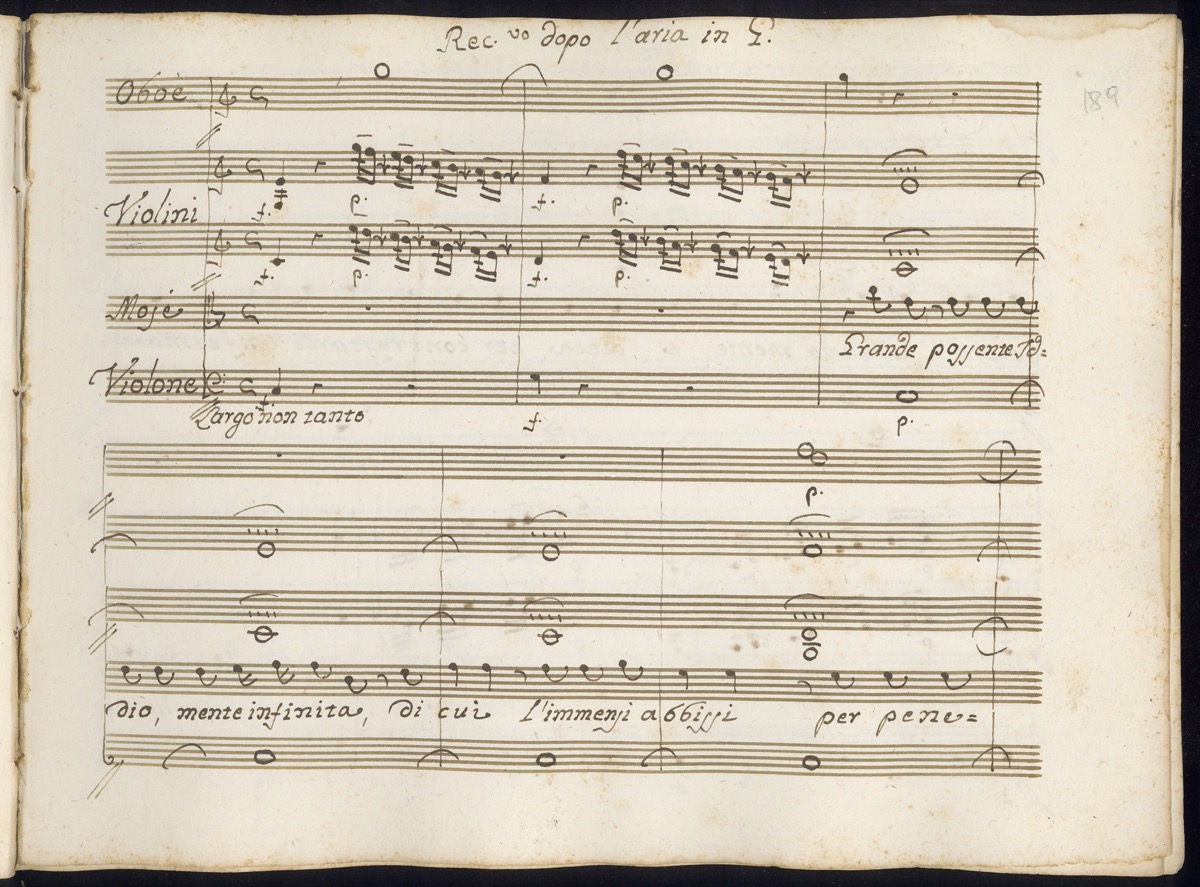 Rec.vo dopo l'aria in G.
Oboè
189
Violini
f. p. f. p.
f. p. f. p.
Mosè
Grande possente Id=
Violone
f. f. p.
Largo non tanto
p.
dio, mente infinita, di cui L'immensi abbissi per pene=